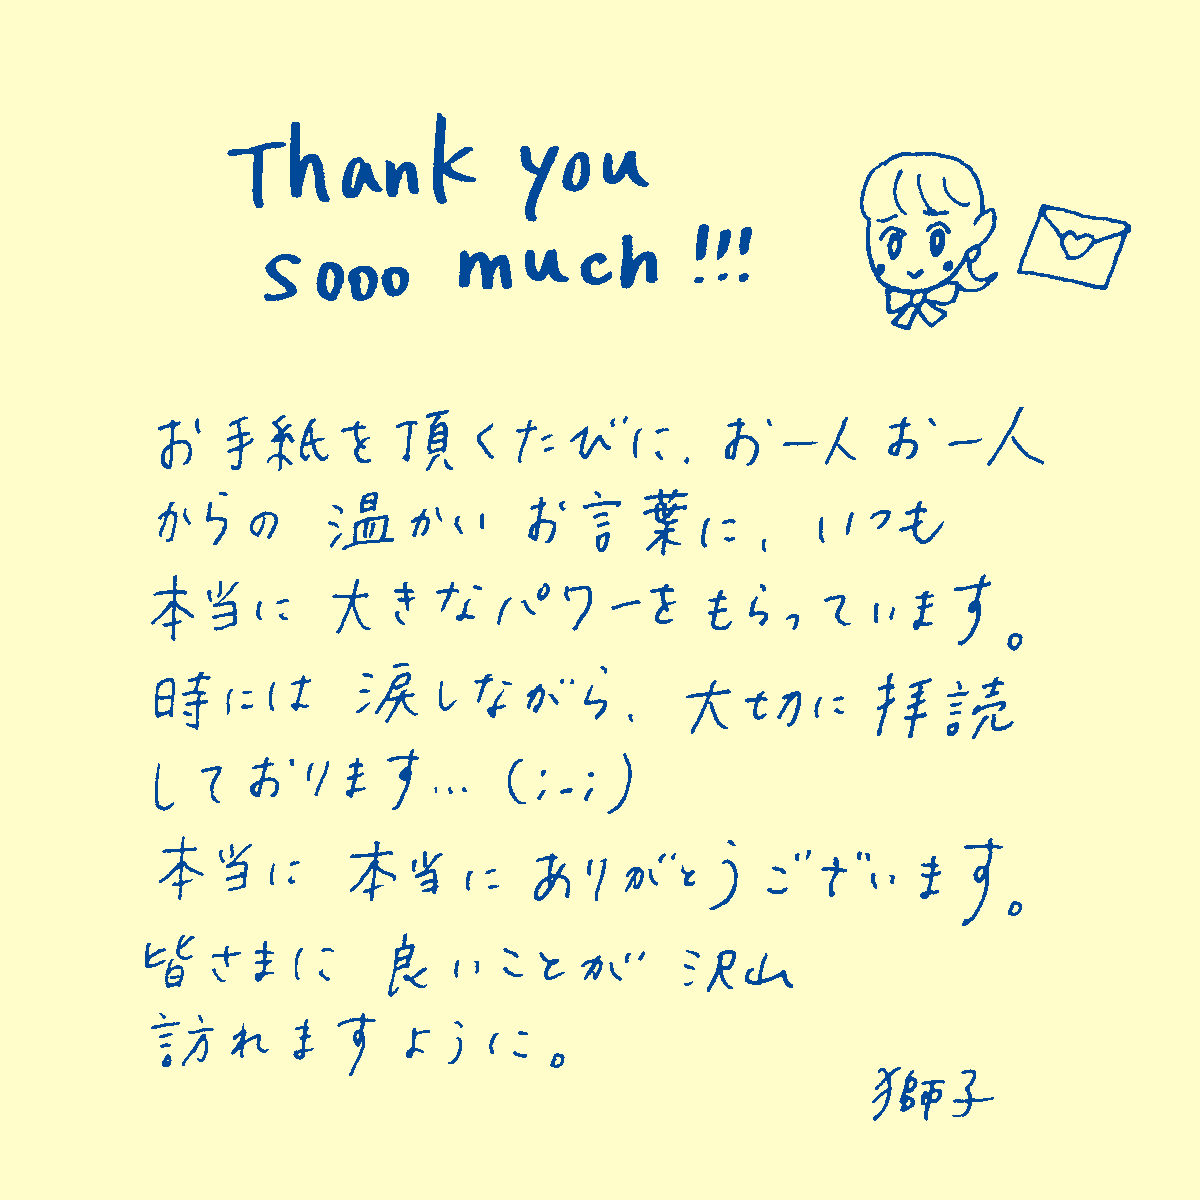 Thank you
sooo much!!!
お手紙を頂くたびに、お一人お一人
からの温かいお言葉に、いつも
本当に大きなパワーをもらっています。
時には涙しながら、大切に拝読
しております…(;-;)
本当に本当にありがとうございます。
皆さまに良いことが沢山
訪れますように。
獅子